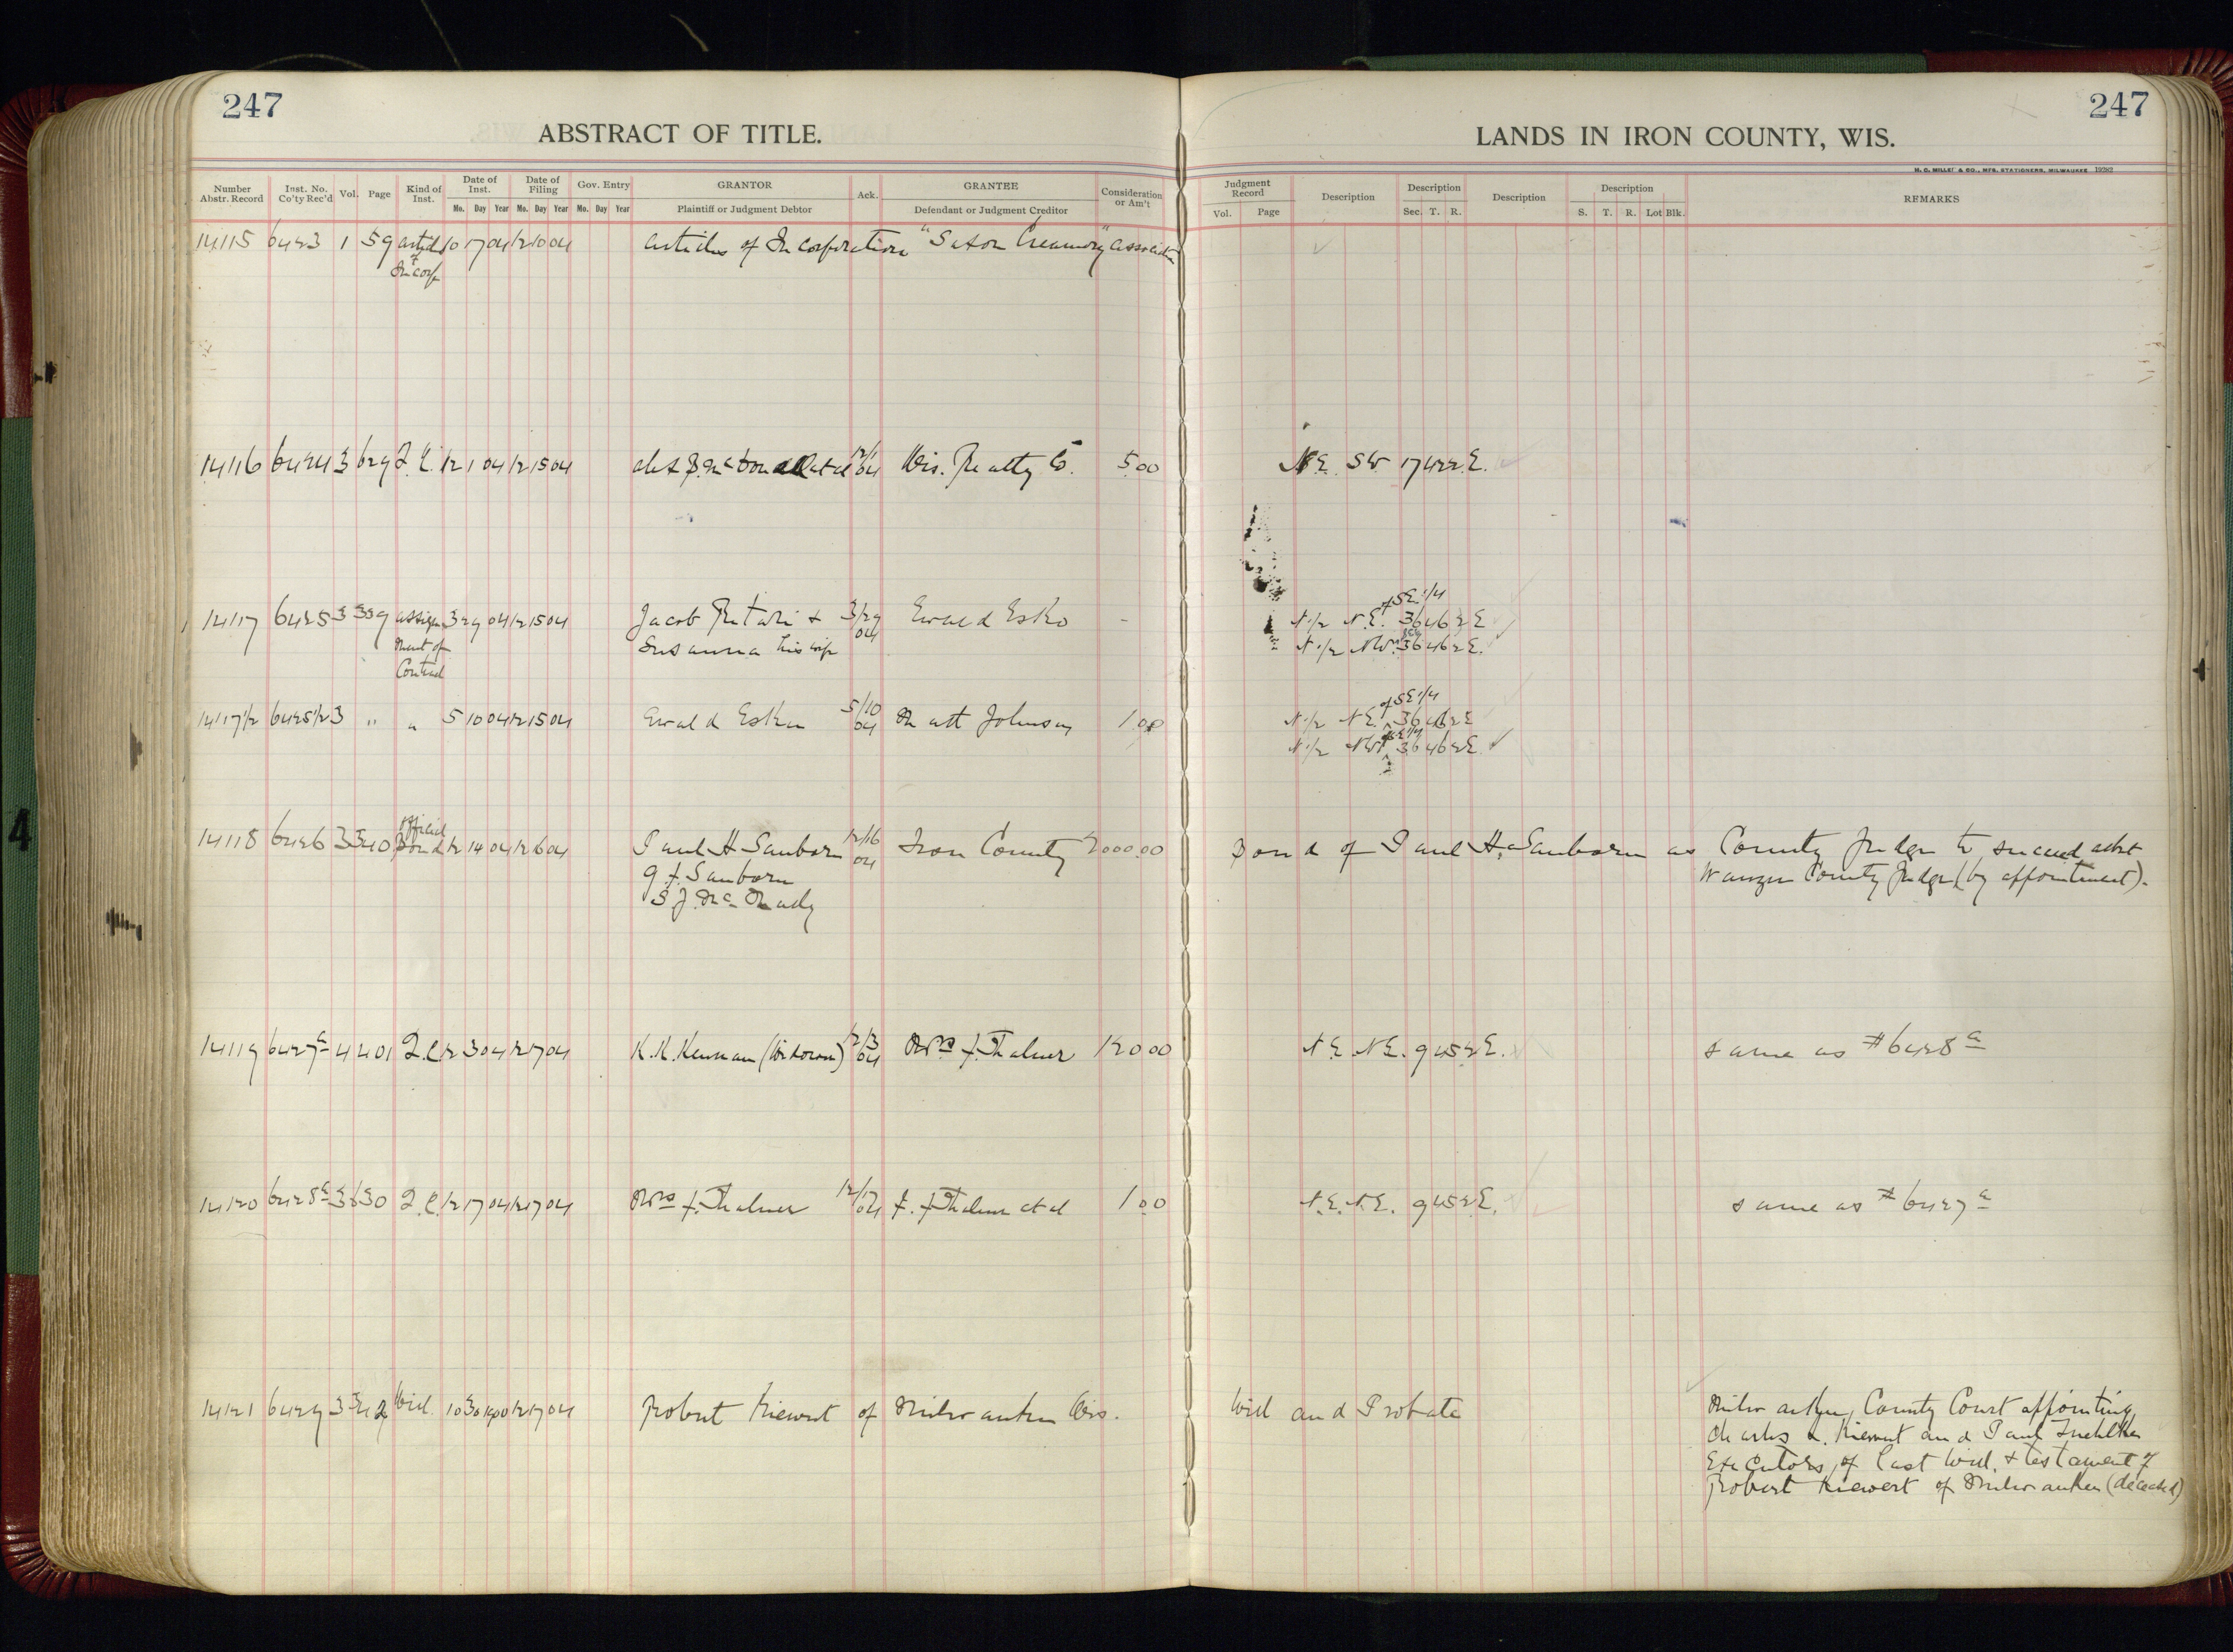 247
247
ABSTRACT OF TITLE.
LANDS IN IRON COUNTY, WIS.
M. C. MILLET & CO., MFG. STATIONERS, MILWAUKEE 19282
Number Abstr. Record Inst. No. Co'ty Rec'd Vol. Page Kind of Inst. Date of Inst. Mo. Day Year Date of Filing Mo. Day Year Gov. Entry Mo. Day Year GRANTOR Plaintiff or Judgment Debtor Ack. GRANTEE Defendant or Judgment Creditor Consideration or Am't
Judgment Record Vol. Page Description Description Sec. T. R. Description Description S. T. R. Lot Blk. REMARKS
14115 6423 1 59 articles 10 17 04 12 10 04 Articles of Incorporation "Saxon Creamery" Association
of
Incorp
14116 6424 3 629 Q.C. 12 1 04 12 15 04 McDonald et al 12/1 04 Wis. Realty Co. 5.00 N.E. SW. 17 42 2 E.
of SE 1/4
14117 6425 3 539 assign 3 29 04 12 15 04 Jacob & 3/29 04 Ewald Esko - N 1/2 N.E. 36 46 2 E
ment of Susanna his wife N 1/2 NW. 36 46 2 E.
Contract
of SE 1/4
14117 1/2 6425 1/2 3 " " 5 10 04 12 15 04 Ewald Esko 5/10 04 Matt Johnson 1.00 N 1/2 N.E. 36 46 2 E
N 1/2 NW. 36 46 2 E.
Official
14118 6426 3 540 Bond 12 14 04 12 16 04 Paul H Sanborn 12/16 04 Iron County 2000.00 Bond of Paul H. Sanborn as County Judge to succeed
Sanborn County Judge (by appointment).
S J.
14119 6427a 4 401 Q.C. 12 3 04 12 17 04 K.K. Kennan (Widower) 12/3 04 Mrs F. Thalner 120 00 N.E. N.E. 9 45 2 E. same as #6428a
14120 6428a 3 630 Q.C. 12 17 04 12 17 04 Mrs F. Thalner 12/17 04 F. J Thalner et al 1 00 N.E. N.E. 9 45 2 E. same as #6427a
14121 6429 3 542 Will. 10 30 1900 12 17 04 Robert Kiewert of Milwaukee Wis. Will and Probate Milwaukee, County Court appointing
Charles Kiewert and Paul
Executors of last will & testament of
Robert Kiewert of Milwaukee (deceased)
4